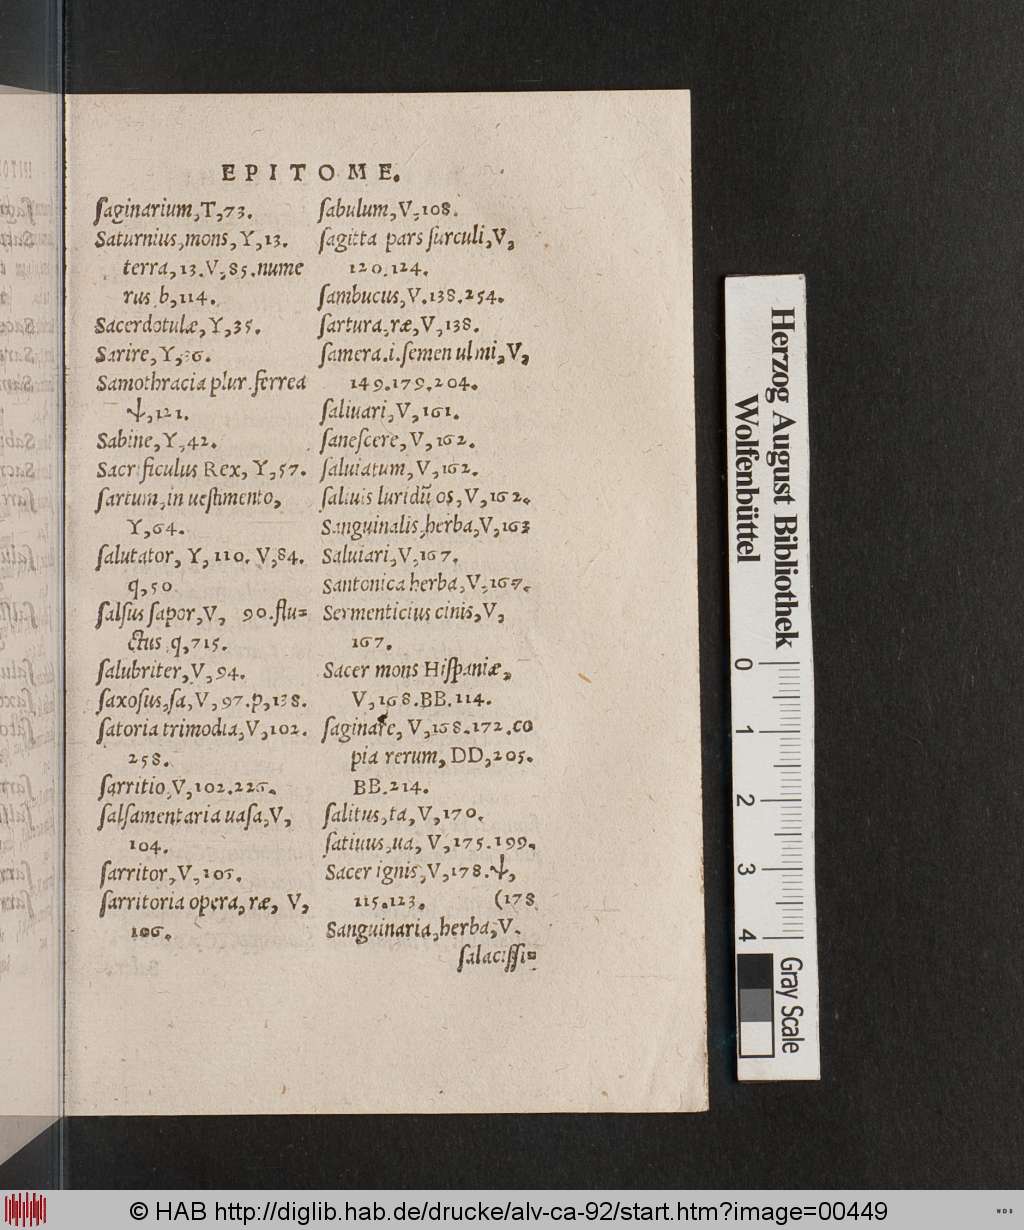 EPITOME.
saginarium,T,73.
Saturnius,mons,Y,13.
terra,13.V,85.nume
rus b,114.
Sacerdotulæ,Y,35.
Sarire,Y,36.
Samothracia plur.ferrea
ψ,121.
Sabine,Y,42.
Sacrificulus Rex,Y,57.
ſartum,in ueſtimento,
Y,64.
ſalutator, Y,110. V,84.
q,50
ſalſus ſapor,V, 90.flu=
ctus q,715.
ſalubriter,V,94.
ſaxoſus,ſa,V,97.p,138.
ſatoria trimodia,V,102.
258.
ſarritio,V,102.226.
ſalſamentaria uaſa,V,
104.
ſarritor,V,105.
ſarritoria opera,ræ, V,
106.
ſabulum,V,108.
ſagitta pars ſurculi,V,
120.124.
ſambucus,V.138.254.
ſartura,ræ,V,138.
ſamera.i.ſemen ulmi,V,
149.179.204.
ſaliuari,V,161.
ſaneſcere,V,162.
ſaluiatum,V,162.
ſaliuis luridū os,V,162.
Sanguinalis,herba,V,163
Saluiari,V,167.
Santonica herba,V,167.
Sermenticius cinis,V,
167.
Sacer mons Hiſpaniæ,
V,168.BB.114.
ſaginare, V,168.172.co
pia rerum, DD,205.
BB.214.
ſalitus,ta,V,170.
ſatiuus,ua, V,175.199.
Sacer ignis,V,178.ψ,
115.123. (178
Sanguinaria,herba,V.
ſalaciſſi=
Herzog August Bibliothek
Wolfenbüttel
0 1 2 3 4
Gray Scale
© HAB http://diglib.hab.de/drucke/alv-ca-92/start.htm?image=00449